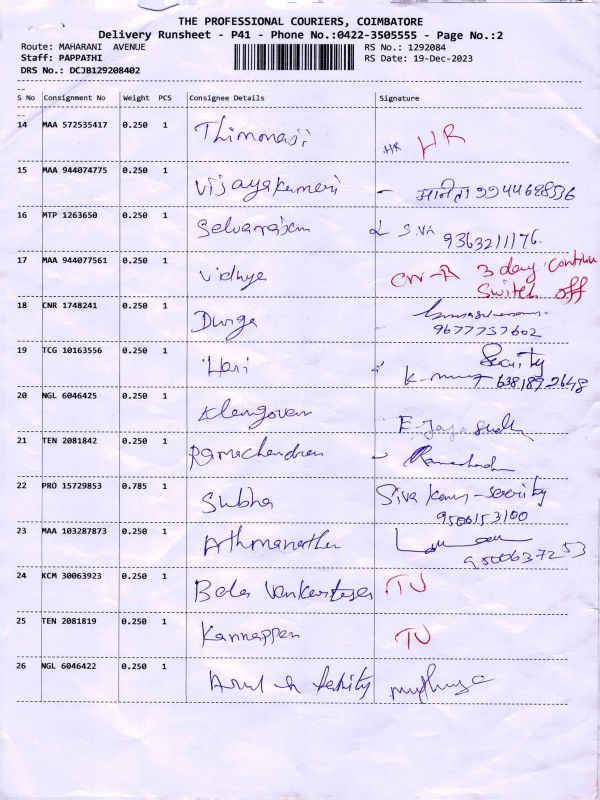 THE PROFESSIONAL COURIERS, COIMBATORE
Delivery Runsheet - P41 - Phone No.:0422-3505555 - Page No.:2
Route: MAHARANI AVENUE RS No.: 1292084
Staff: PAPPATHI RS Date: 19-Dec-2023
DRS No.: DCJB129208402
S No Consignment No Weight PCS Consignee Details Signature
14 MAA 572535417 0.250 1 HR HR
15 MAA 944074775 0.250 1 Vijayakumari 9944688536
16 MTP 1263650 0.250 1 Selvaraism S.VA
9363211176.
17 MAA 944077561 0.250 1 Vidhya CN-R 3 day Continu
Switch off
18 CNR 1748241 0.250 1 Durga
9677757602
19 TCG 10163556 0.250 1 Hari Security
6381892648
20 NGL 6046425 0.250 1 Elangovan E. Jaya
21 TEN 2081842 0.250 1 Ramachandran
22 PRO 15729853 0.785 1 Subha Siva Kamy - Security
9500153100
23 MAA 103287873 0.250 1
9500637253
24 KCM 30063923 0.250 1 Bala Venkatesan TU
25 TEN 2081819 0.250 1 Kannappan TU
26 NGL 6046422 0.250 1 Arul